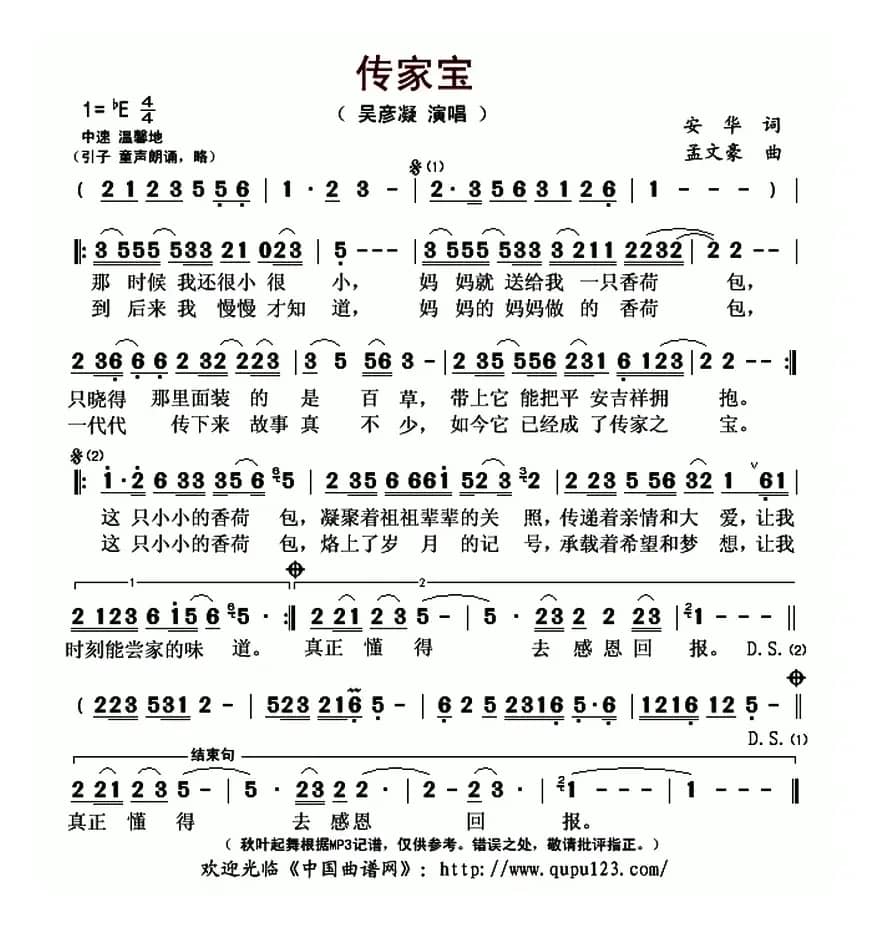 传家宝
1=♭E 4/4
（ 吴彦凝 演唱 ）
安 华 词
中速 温馨地
孟文豪 曲
（引子 童声朗诵，略）
𝄋(1)
( 2 1 2 3 5 5 6 | 1 · 2 3 - | 2 · 3 5 6 3 1 2 6 | 1 - - - ) |
‖: 3 555 533 21 023 | 5 - - - | 3 555 533 3 211 2232 | 2 2 - - |
那 时候 我还很小 很 小， 妈 妈就 送给我 一只香荷 包，
到 后来 我 慢慢 才知 道， 妈 妈的 妈妈做 的 香荷 包，
2 36 6 6 2 32 223 | 3 5 56 3 - | 2 35 556 231 6 123 | 2 2 - - :‖
只晓得 那里面装 的 是 百 草， 带上它 能把平 安吉祥拥 抱。
一代代 传下来 故事 真 不 少， 如今它 已经成 了传家之 宝。
𝄋(2)
‖: 1·2 6 33 35 6 5 | 2 35 6 661 52 3 2 | 2 23 5 56 32 1 61 |
这 只小小的香荷 包，凝聚着祖祖辈辈的关 照，传递着亲情和大 爱，让我
这 只小小的香荷 包，烙上了岁 月 的记 号，承载着希望和梦 想，让我
1 2
2 123 6 156 5 · :‖ 2 21 2 3 5 - | 5 · 23 2 2 23 | 1 - - - ‖
时刻能尝家的味 道。 真正 懂 得 去 感恩回 报。 D.S.(2)
( 223 531 2 - | 523 216 5 - | 6 2 5 2316 5·6 | 1216 12 5 - ‖
D.S.(1)
结束句
2 21 2 3 5 - | 5 · 23 2 2 - | 2 - 2 3 | 1 - - - | 1 - - - ‖
真正 懂 得 去 感恩 回 报。
（ 秋叶起舞根据MP3记谱，仅供参考。错误之处，敬请批评指正。）
欢迎光临《中国曲谱网》：http://www.qupu123.com/